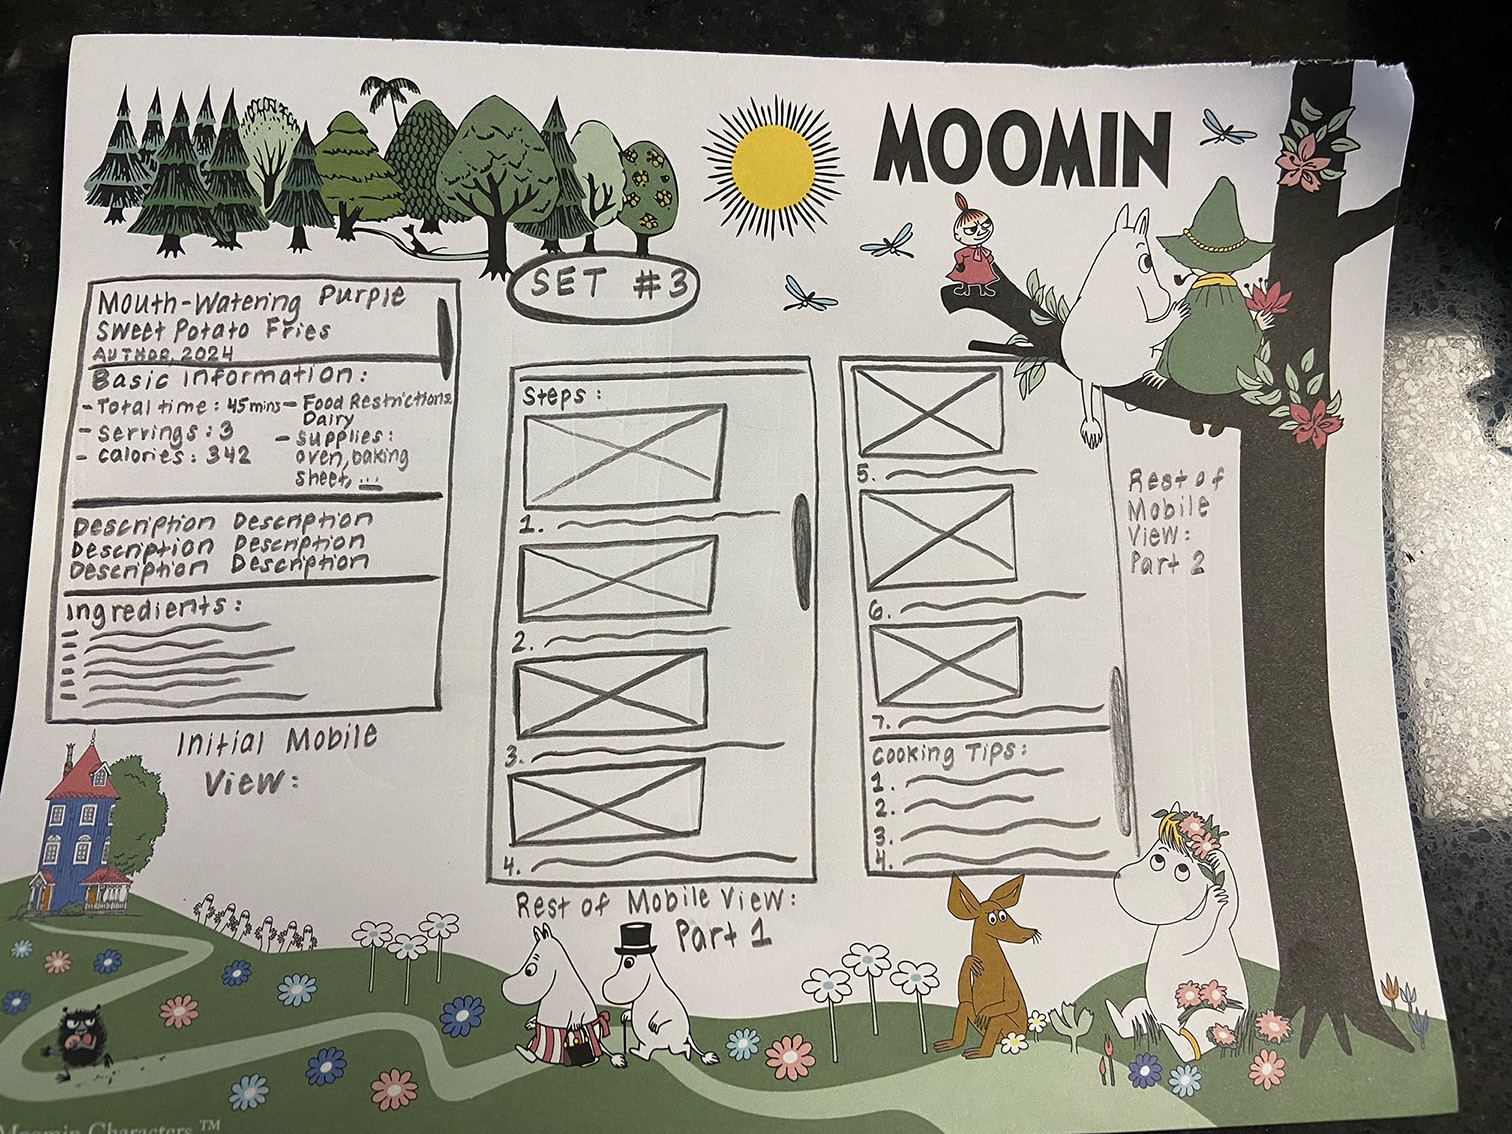 MOOMIN
SET #3
Mouth-Watering Purple
Sweet Potato Fries
AUTHOR, 2024
Basic Information:
- Total time: 45 mins
- servings: 3
- calories: 342
- Food Restrictions:
Dairy
- supplies:
oven, baking
sheet, ...
Description Description
Description Description
Description Description
Ingredients:
Initial Mobile
View:
Steps:
1.
2.
3.
4.
Rest of Mobile View:
Part 1
5.
6.
7.
Cooking Tips:
1.
2.
3.
4.
Rest of
Mobile
View:
Part 2
Moomin Characters ™